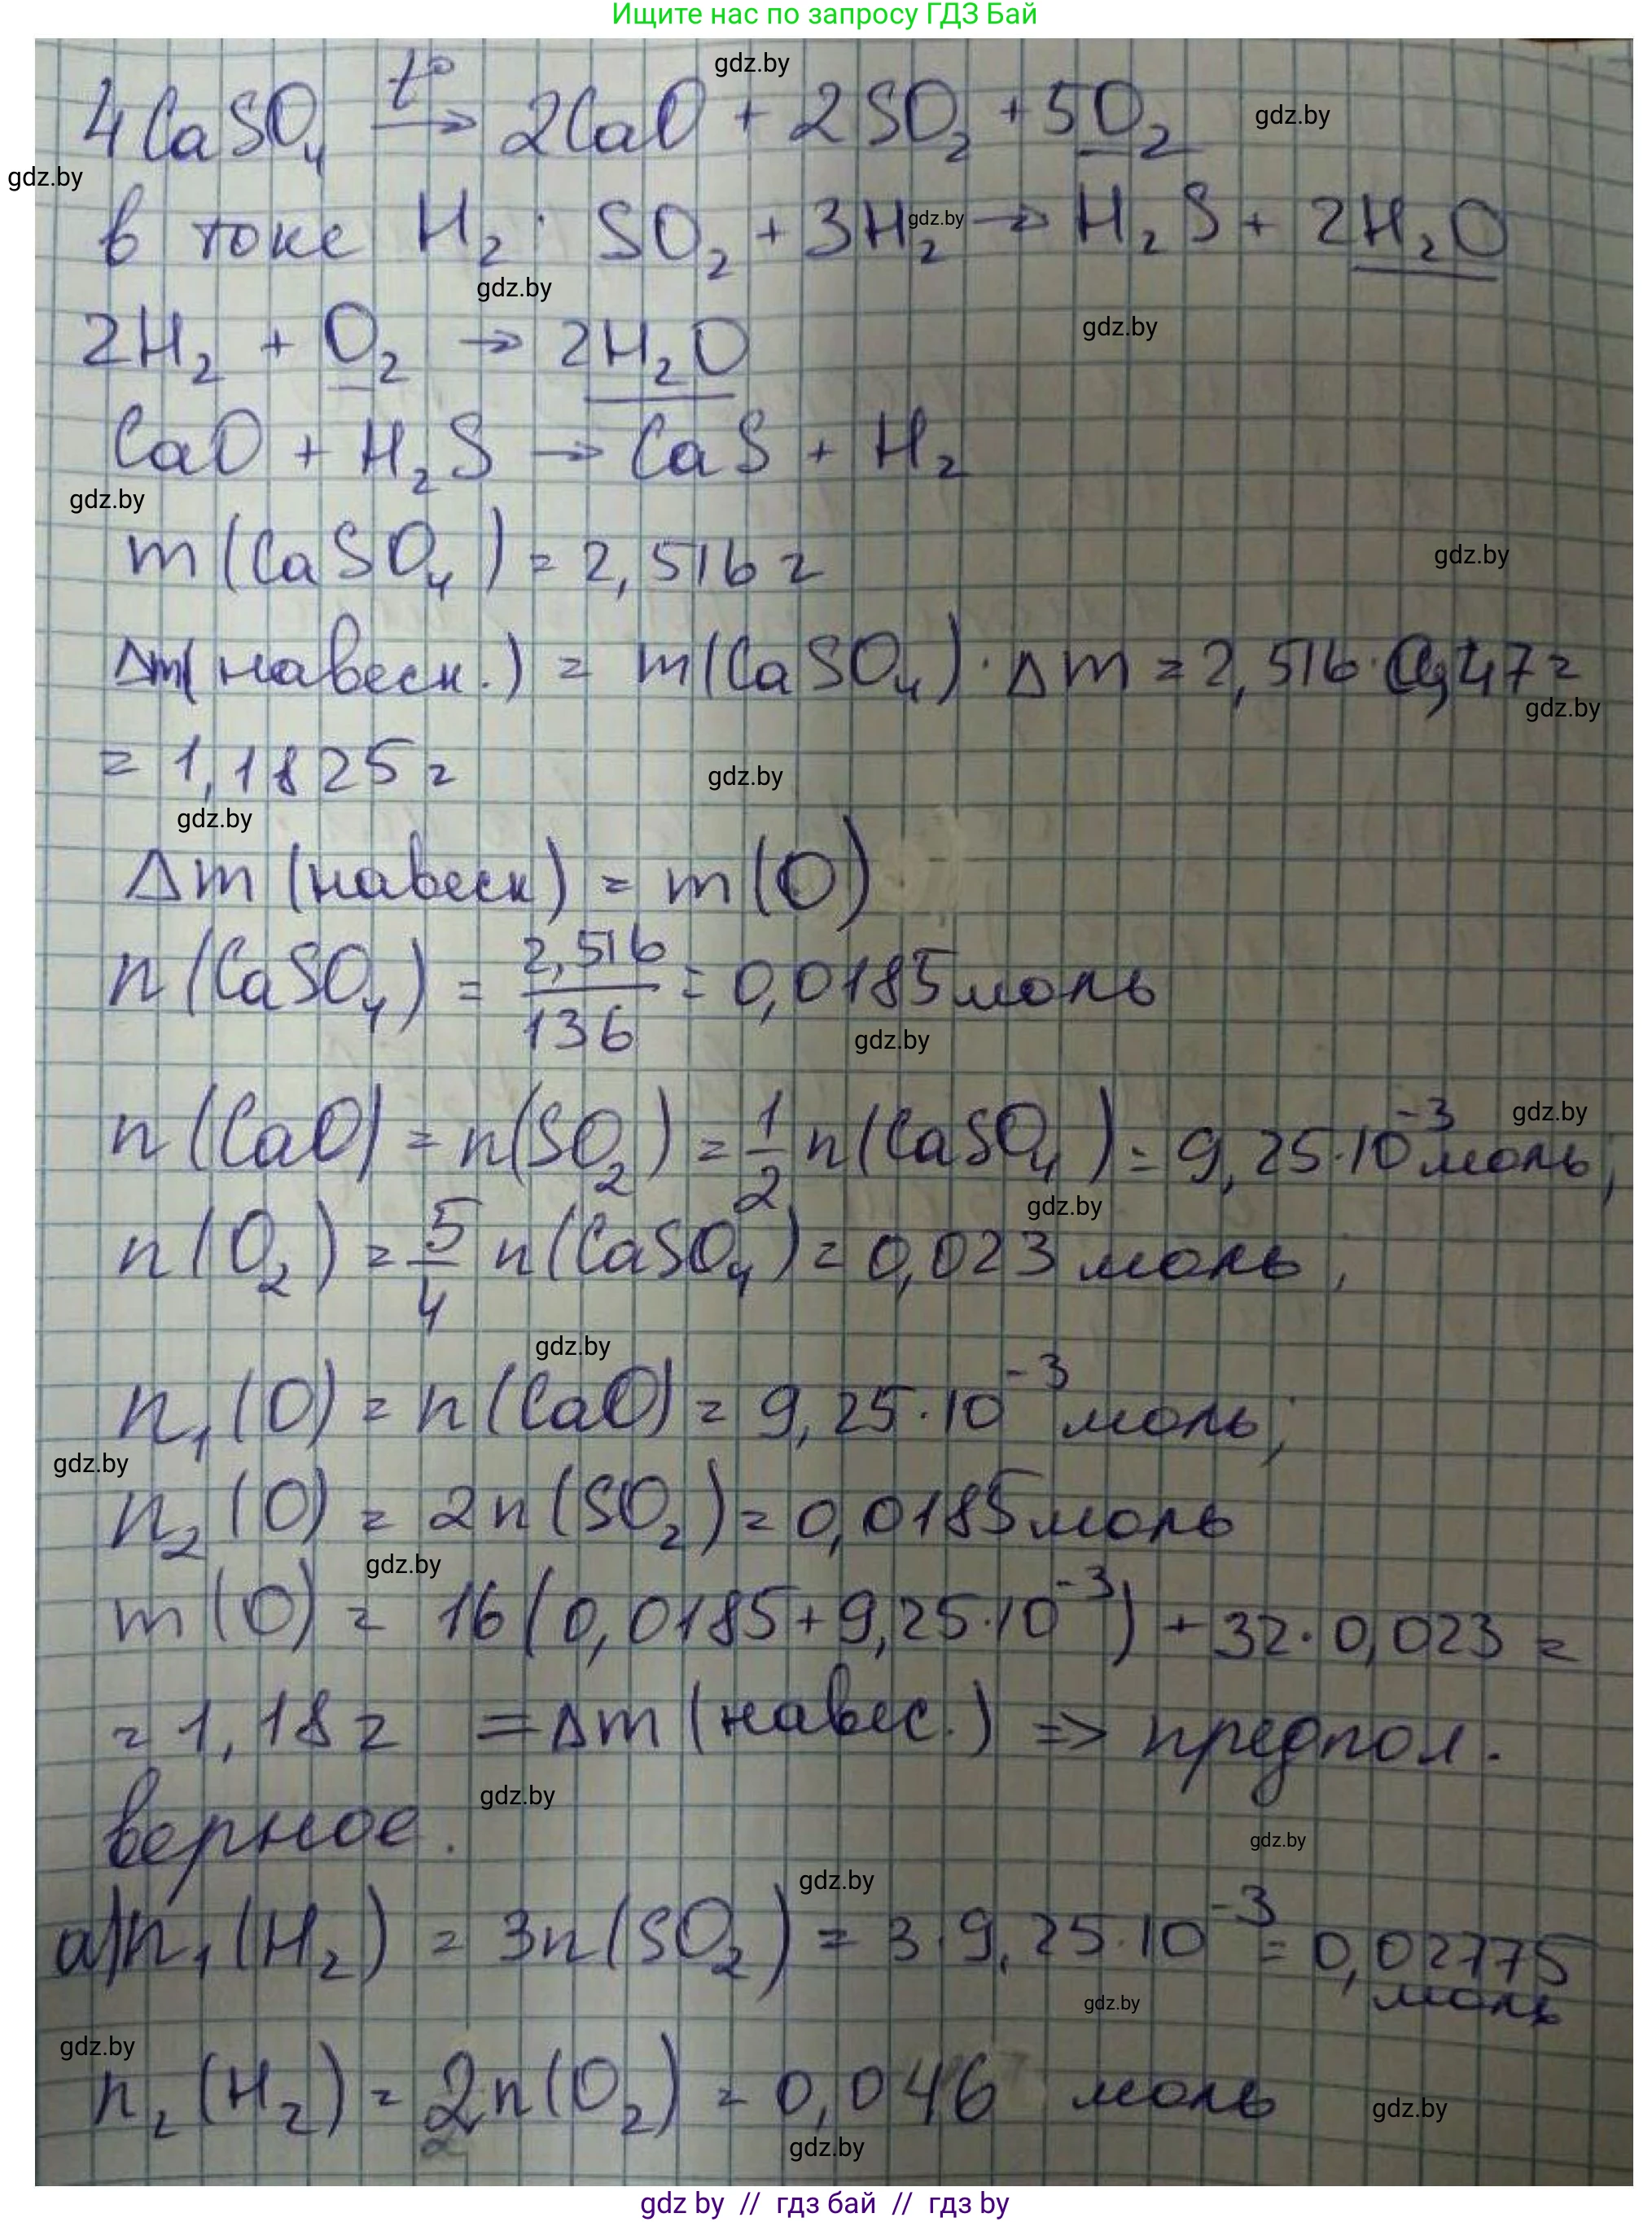 Ищите нас по запросу ГДЗ Бай
gdz.by
4CaSO₄ t° → 2CaO + 2SO₂ + 5O₂
gdz.by
gdz.by
в токе H₂: SO₂ + 3H₂ → H₂S + 2H₂O
gdz.by
gdz.by
gdz.by
2H₂ + O₂ → 2H₂O
CaO + H₂S → CaS + H₂
gdz.by
m(CaSO₄) = 2,516 г
gdz.by
Δm(навеск.) = m(CaSO₄)·Δm = 2,516·0,47 =
gdz.by
= 1,1825 г
gdz.by
gdz.by
Δm (навеск) = m(O)
n(CaSO₄) = 2,516/136 = 0,0185 моль
gdz.by
n(CaO) = n(SO₂) = 1/2 n(CaSO₄) = 9,25·10⁻³ моль;
gdz.by
gdz.by
n(O₂) = 5/4 n(CaSO₄) = 0,023 моль;
gdz.by
n₁(O) = n(CaO) = 9,25·10⁻³ моль;
gdz.by
n₂(O) = 2n(SO₂) = 0,0185 моль
gdz.by
m(O) = 16(0,0185 + 9,25·10⁻³) + 32·0,023 =
= 1,18 г = Δm (навес.) => предпол.
gdz.by
верное.
gdz.by
gdz.by
а) n₁(H₂) = 3n(SO₂) = 3·9,25·10⁻³ = 0,02775
моль
gdz.by
gdz.by
n₂(H₂) = 2n(O₂) = 0,046 моль
gdz.by
gdz.by
gdz by // гдз бай // гдз by